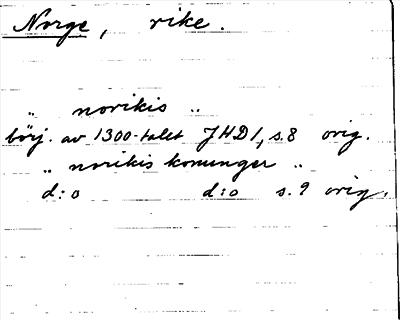 Norge, rike.
„ norikis „
börj. av 1300-talet JHD 1, s. 8 orig.
„ norikis konunger „
d:o d:o s. 9 orig.